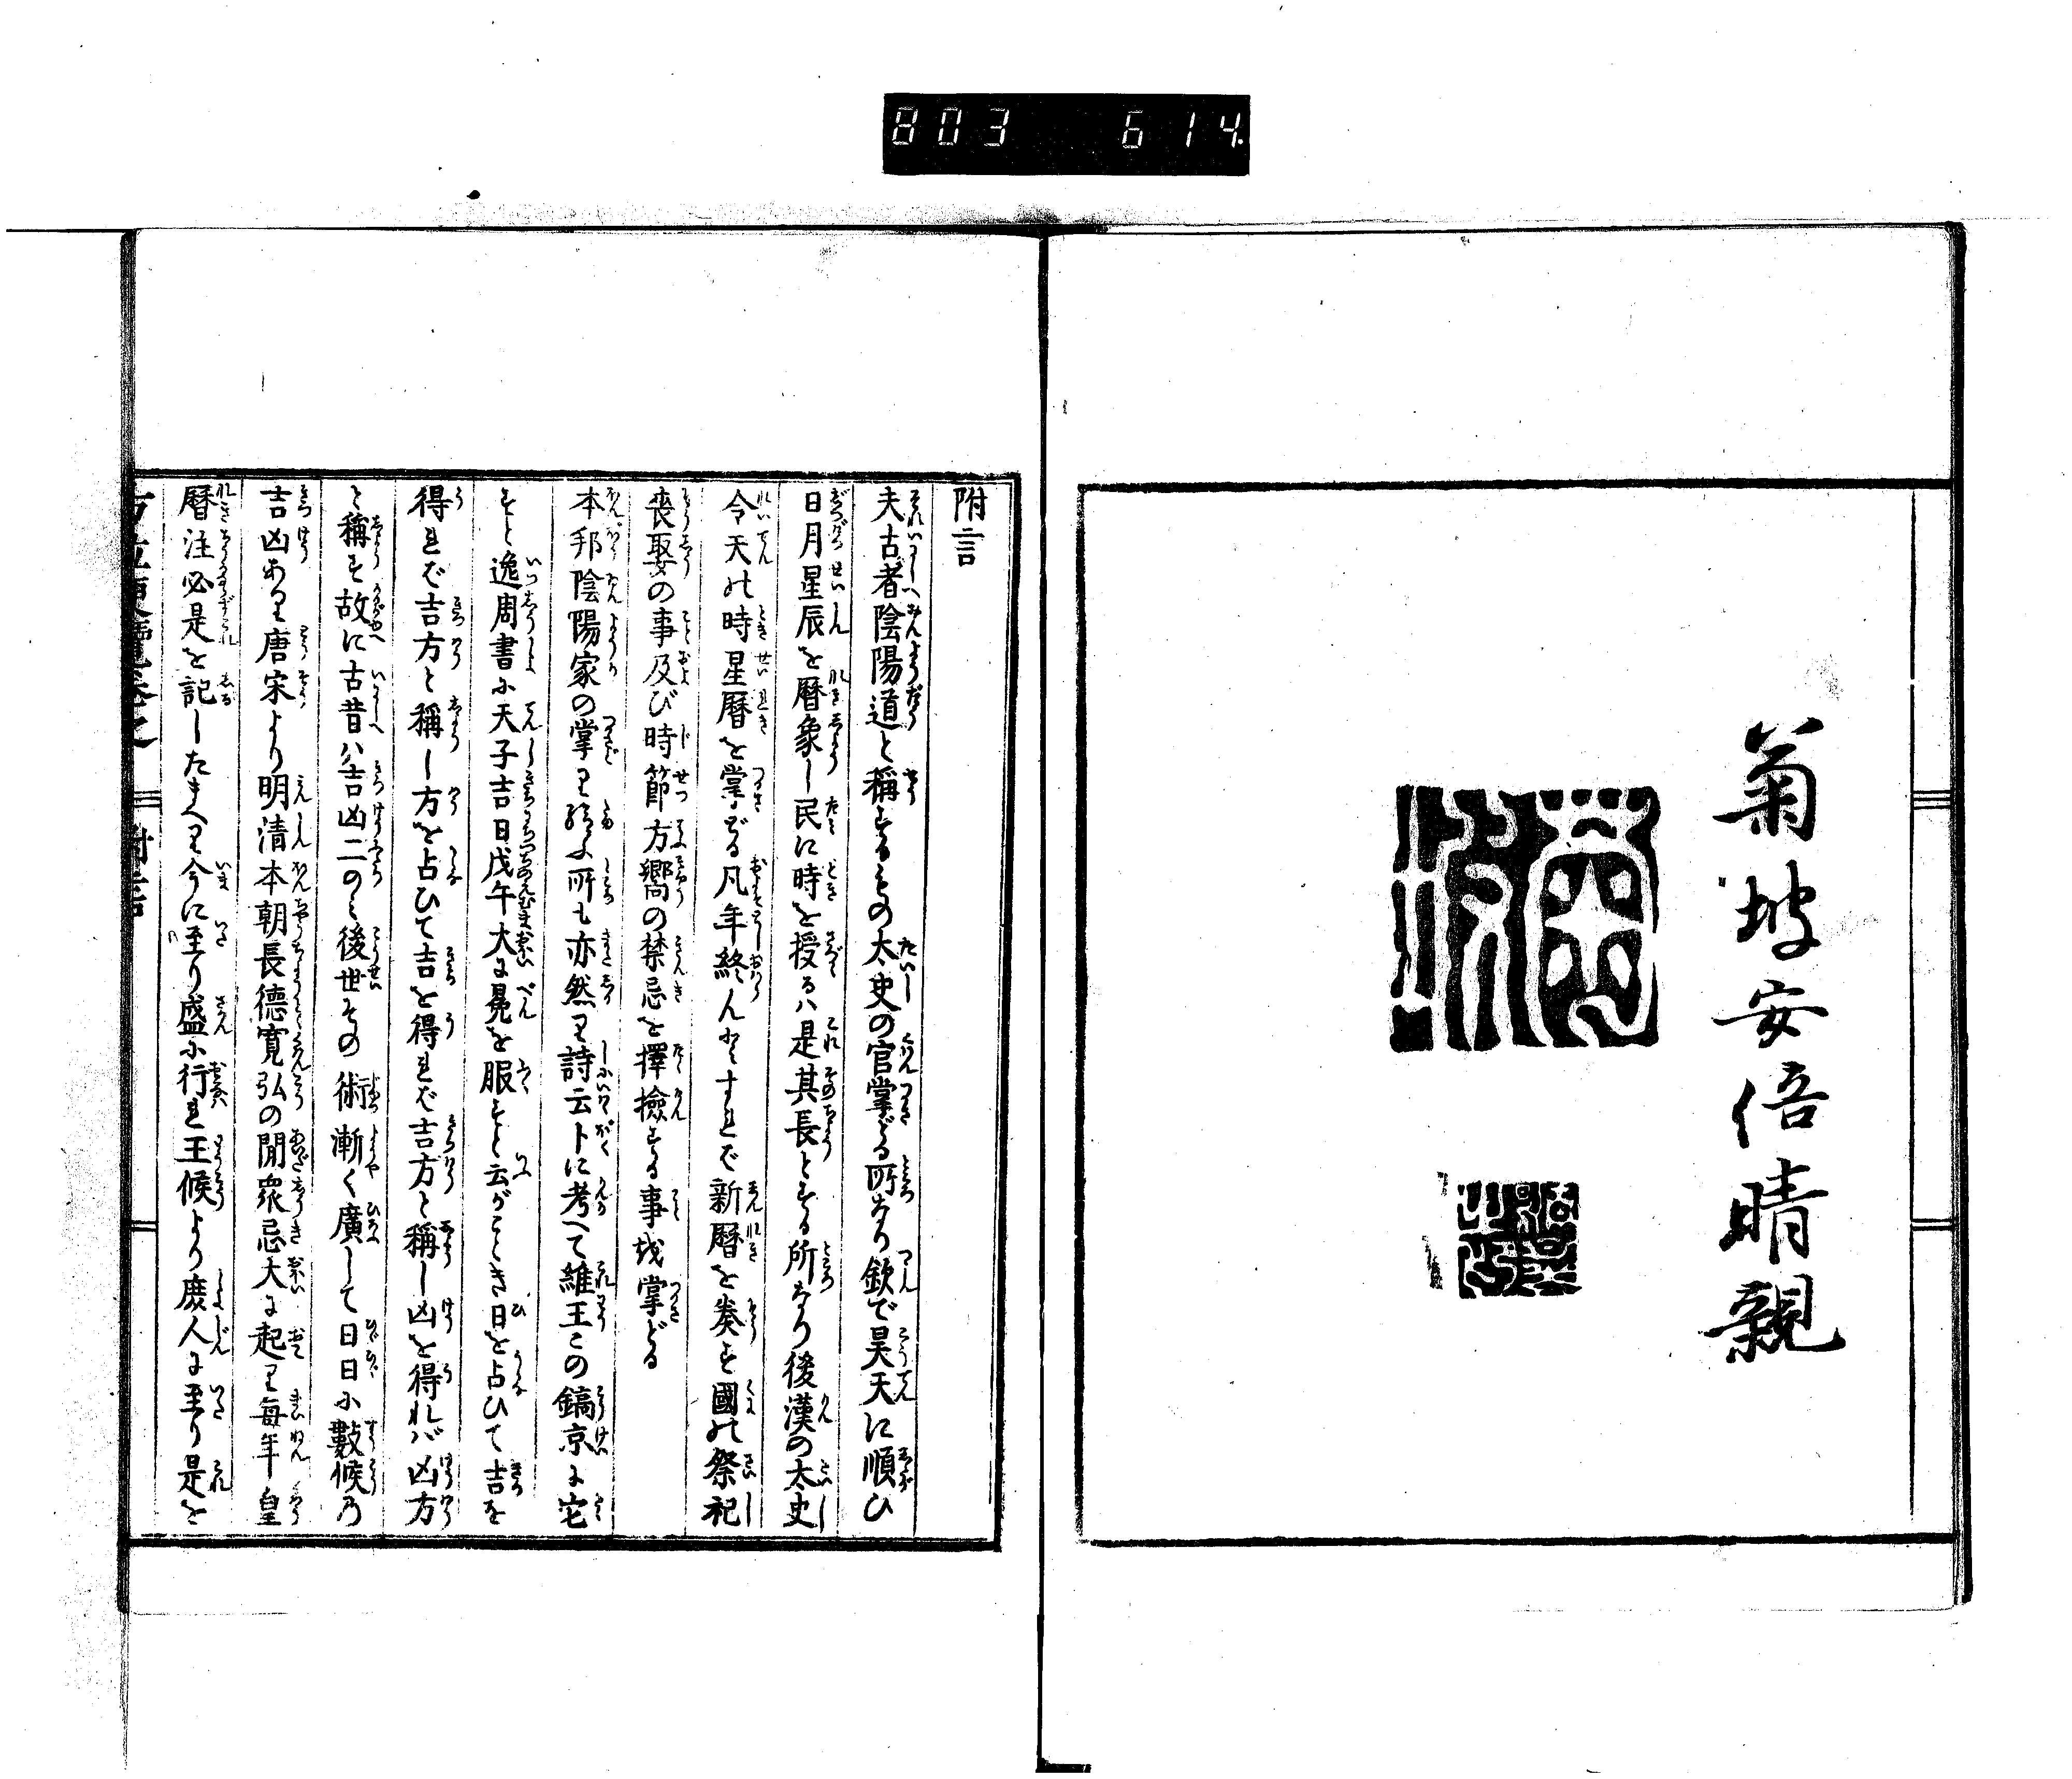 803 614
菊坡安倍晴親
附言
夫古者陰陽道と稱するもの太史の官掌どる所なり欽で昊天に順ひ
日月星辰を暦象し民に時を授るハ是其長とする所なり後漢の太史
令天の時星暦を掌どる凡年終んとすれば新暦を奏す國の祭祀
喪娶の事及び時節方嚮の禁忌を擇撿する事を掌どる
本邦陰陽家の掌り給ふ所も亦然り詩云卜に考へて維王この鎬京に宅
すと逸周書に天子吉日戊午大に冕を服すと云がごとき日を占ひて吉を
得れば吉方と稱し方を占ひて吉を得れば吉方と稱し凶を得れバ凶方
と稱す故に古昔ハ吉凶二のミ後世その術漸く廣して日日に數候乃
吉凶あり唐宋より明清本朝長德寛弘の間衆忌大に起り毎年皇
暦注必是を記したまへり今に至り盛に行れ王候より庶人に至り是を
附言